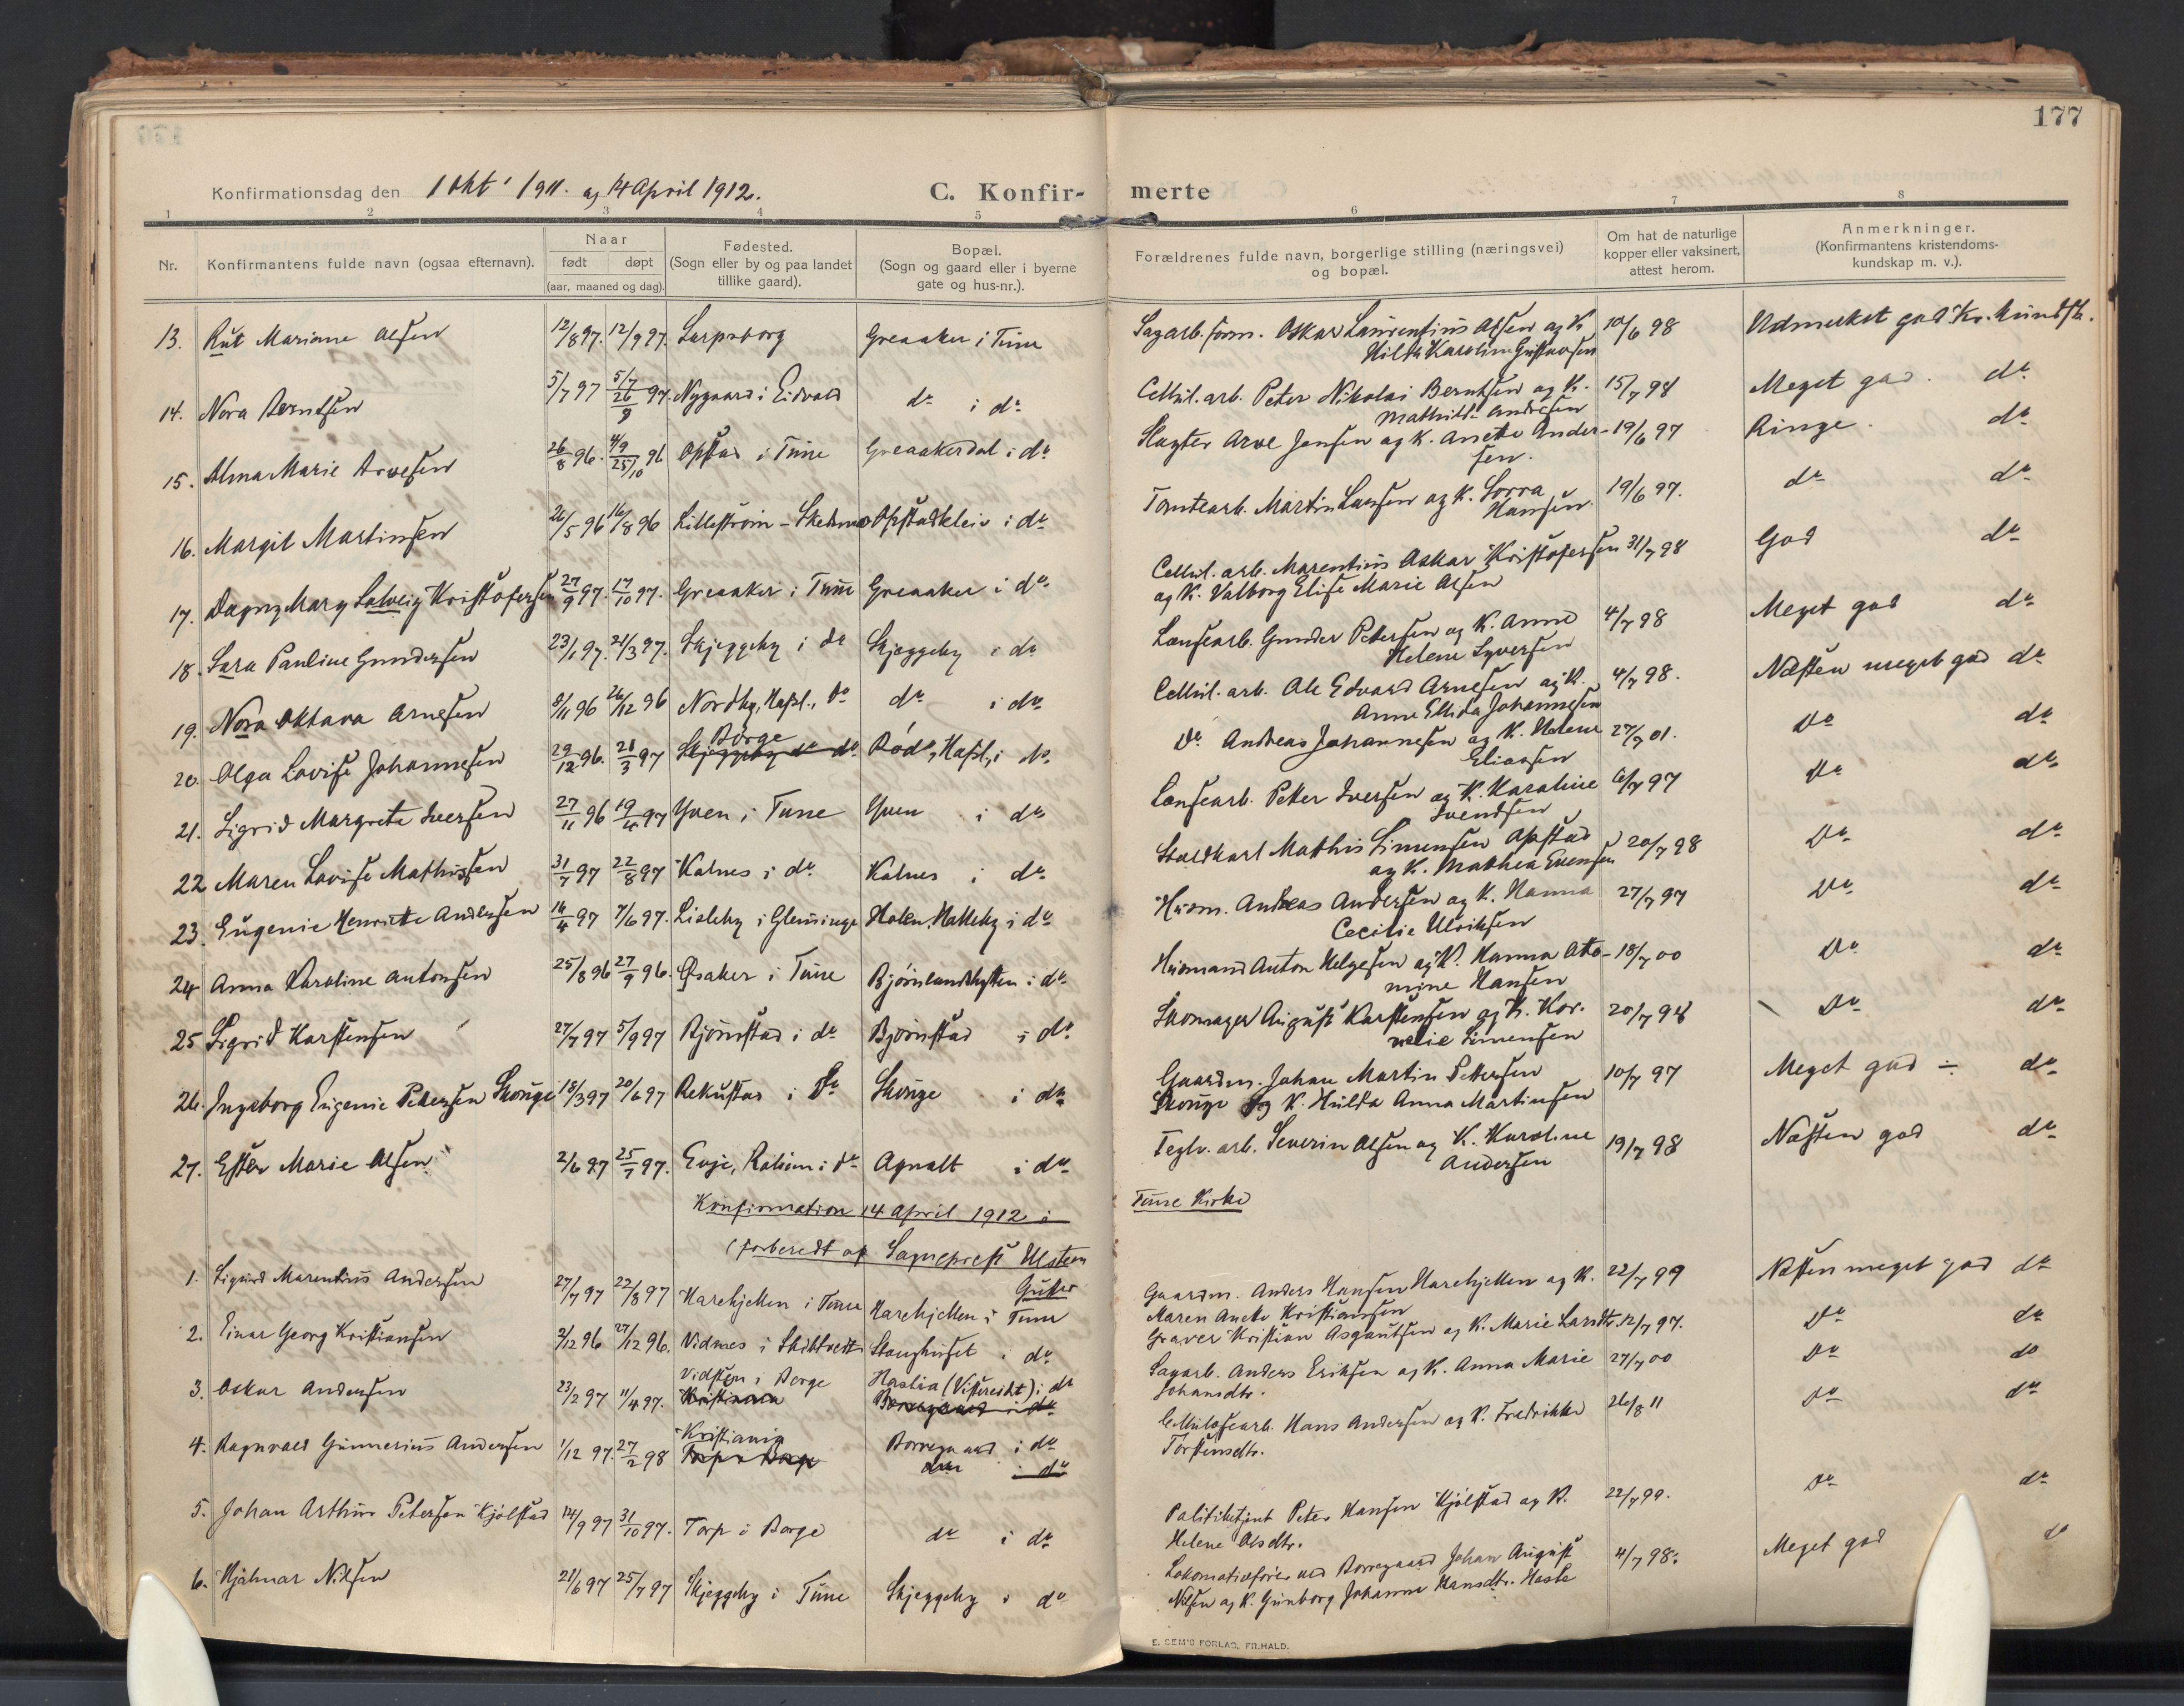 177
Konfirmationsdag den 1 Okt. 1911. og 14 April 1912.
C. Konfir- merte
1 2 3 4 5 6 7 8
Nr.
Konfirmantens fulde navn (ogsaa efternavn).
Naar
født døpt
(aar, maaned og dag).
Fødested.
(Sogn eller by og paa landet
tillike gaard).
Bopæl.
(Sogn og gaard eller i byerne
gate og hus-nr.).
Forældrenes fulde navn, borgerlige stilling (næringsvei)
og bopæl.
Om hat de naturlige
kopper eller vaksinert,
attest herom.
Anmerkninger.
(Konfirmantens kristendoms-
kundskap m. v.).
13. Rut Mariane Olsen 12/8 97. 12/9 97. Sarpsborg Greaaker i Tune Sagarb. form. Oskar Laurentius Olsen og K. 10/6 98 Udmerket god Kr. kundsk.
Hilda Karoline Gustavsen
14. Nora Berntsen 5/7 97 5/7 26/9 97. Nygaard i Eidvold do i do Cellul. arb. Peter Nikolai Berntsen og K. 15/7 98 Meget god. do
Mathilde Andresen
15. Alma Marie Arvesen 26/8 96. 4/9 25/10 96 Opstad i Tune Greaakerdal i do Slagter Arve Jensen og K. Anette Ander- 19/6 97 Ringe. do
sen.
16. Margit Martinsen 26/5 96 16/8 96 Lillestrøm - Skedsmo Opstadkleiv i do Tomtearb. Martin Larsen og K. 19/6 97. do do
Hansen.
17. Dagny Mary Solveig Kristofersen 27/9 97. 17/10 97. Greaaker i Tune Greaaker i do Cellul. arb. Marentius Oskar Kristofersen 31/7 98 God do
og K. Valborg Elise Marie Olsen
18. Sara Pauline Gundersen 23/1 97. 21/3 97. Skjeggeby i do Skjeggeby i do Lensearb. Gunder Pettersen og K. Anne 4/7 98 Meget god do
Helene Syversen
19. Nora Oktava Arnesen 8/11 96 26/12 96 Nordby, Hafsl., do do i do Cellul. arb. Ole Edvard Arnesen og K. 4/7 98. Næsten meget god do
Anne Elida Johannesen
Borge
20. Olga Lovise Johannesen 29/12 96. 28/3 97 Skjeggeby do do Rød, Hafsl, i do. Do Andreas Johannesen og K. Helene 27/7 01. Do do
Eliassen
21. Sigrid Margrete Iversen 27/11 96 19/4 97 Yven i Tune Yven i do Lensearb. Petter Iversen og K. Karoline 6/7 97 Do do
Svendsen
22 Maren Lovise Mathissen 31/7 97 22/8 97 Kalnes i do Kalnes i do Mathis Simensen Opstad 20/7 98 Do do
og K. Mathea Evensen
23. Eugenie Henriette Andersen 14/4 97 7/6 97. Lisleby i Glemminge Holen, Hatteby i do Husm. Andreas Andersen og K. Hanna 27/7 97 Do do
Cecilie Ulriksen
24 Anna Karoline Antonsen 25/8 96 27/9 96. Øsaker i Tune Bjørnlandhytten i do Husmand Anton Helgesen og K. Hanna Otto- 18/7 00 Do do
mine Hansen
25 Sigrid Karstensen 27/7 97 5/9 97 Bjørnstad i do Bjørnstad i do Skomager August Karstensen og K. Kor- 20/7 98 Do do
nelie Simensen
26. Ingeborg Eugenie Petersen Skonge 18/3 97 20/6 97 Rekustad i Do Skonge i do Gaardm. Johan Martin Pettersen 10/7 97 Meget god ÷ do
Skonge og K. Hulda Anna Martinsen
27. Ester Marie Olsen 2/6 97 25/7 97. Evje, Raheim i do Agnalt i do Teglv. arb. Severin Olsen og K. Karoline 19/7 98 Næsten god do
Andersen
Konfirmation 14 April 1912 i Tune Kirke
(forberedt af Sogneprest Ulstein
Gutter
1. Sigurd Marentius Andersen 27/7 97 22/8 97 Harehjellen i Tune Harehjellen i Tune Gaardm. Anders Hansen Harehjellen og K. 22/7 99 Næsten meget god do
Maren Anette Kristiansen
2. Einar Georg Kristiansen 2/12 96 27/12 96. Vidnes i Skibtvedt Stanghuset i do Graver Kristian Asgautsen og K. Marie Larsdtr. 12/7 97. Do do
3. Oskar Andersen 23/2 97 11/4 97. Vidsten i Borge Hastia (Visterseiht) i do Sagarb. Anders Eriksen og K. Anna Marie 27/7 00 Do do
Kristiania Borregaard i do Johansdtr.
4. Ragnvald Gunnerius Andersen 1/12 97. 27/2 98 Kristiania Borregaard i do Cellulosearb. Hans Andersen og K. Fredrikke 26/8 11 Do do
Torp i Borge i do Torstensdtr.
5. Johan Arthur Petersen Kjølstad 14/9 97 31/10 97. Torp i Borge do i do Politibetjent Peter Hansen Kjølstad og K. 22/7 99. Do do
Helene Olsdtr.
6. Hjalmar Nilsen 21/6 97 25/7 97 Skjeggeby i Tune Skjeggeby i do Lokomotivfører ved Borregaard Johan August 4/7 98. Meget god do
Nilsen og K. Gunborg Johanne Hansdtr. Hasle
E. SEM'S FORLAG, FR.HALD.